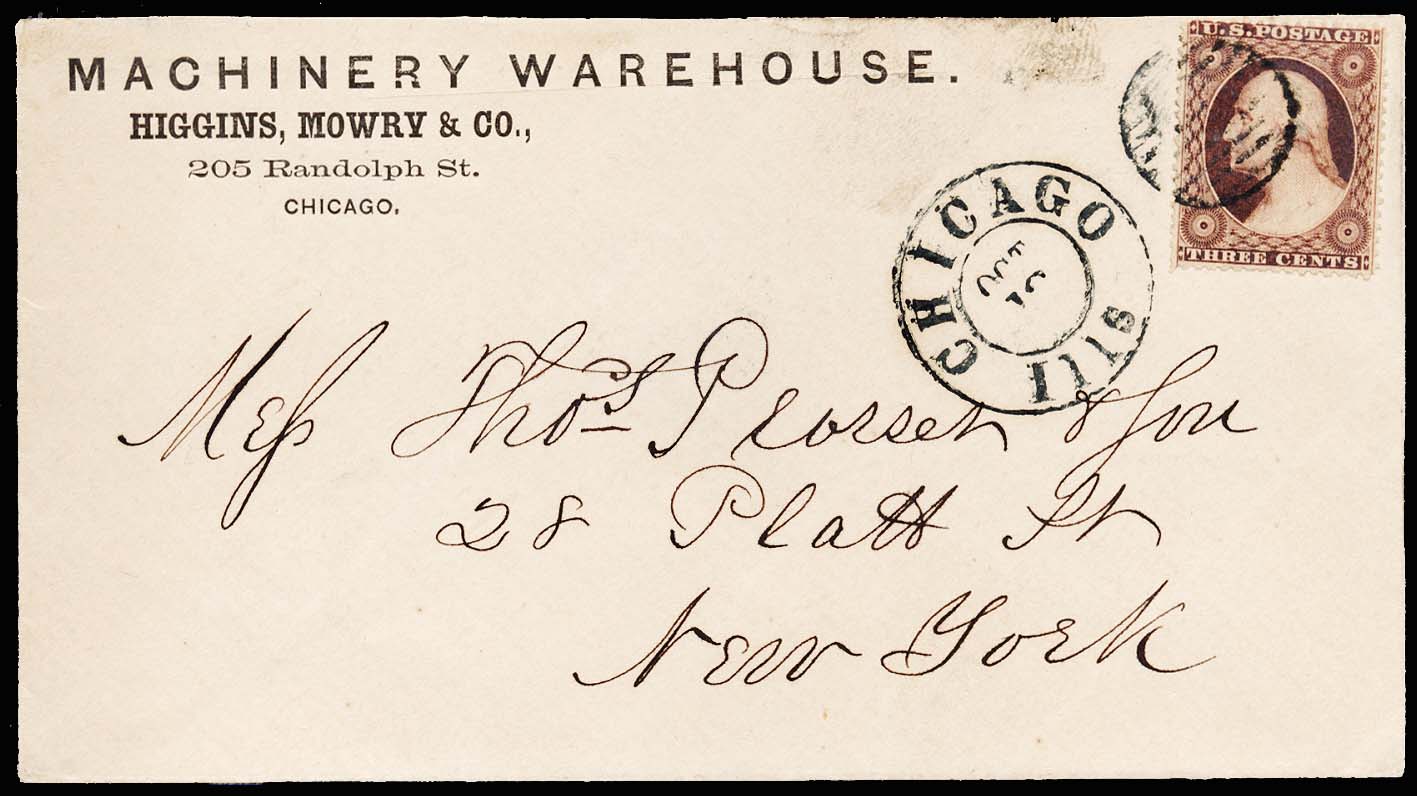 MACHINERY WAREHOUSE.
HIGGINS, MOWRY & CO.,
205 Randolph St.
CHICAGO,
U.S. POSTAGE
THREE CENTS
CHICAGO Ills
Mess Thos Prosser & Son
28 Platt St
New York